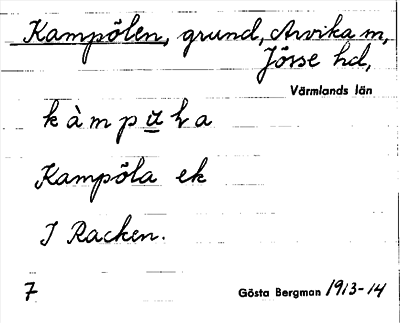 Kampölen, grund, Arvika m,
Jösse hd,
Värmlands län
k à m p ö l a
Kampöla ek
I Racken.
7
Gösta Bergman 1913-14